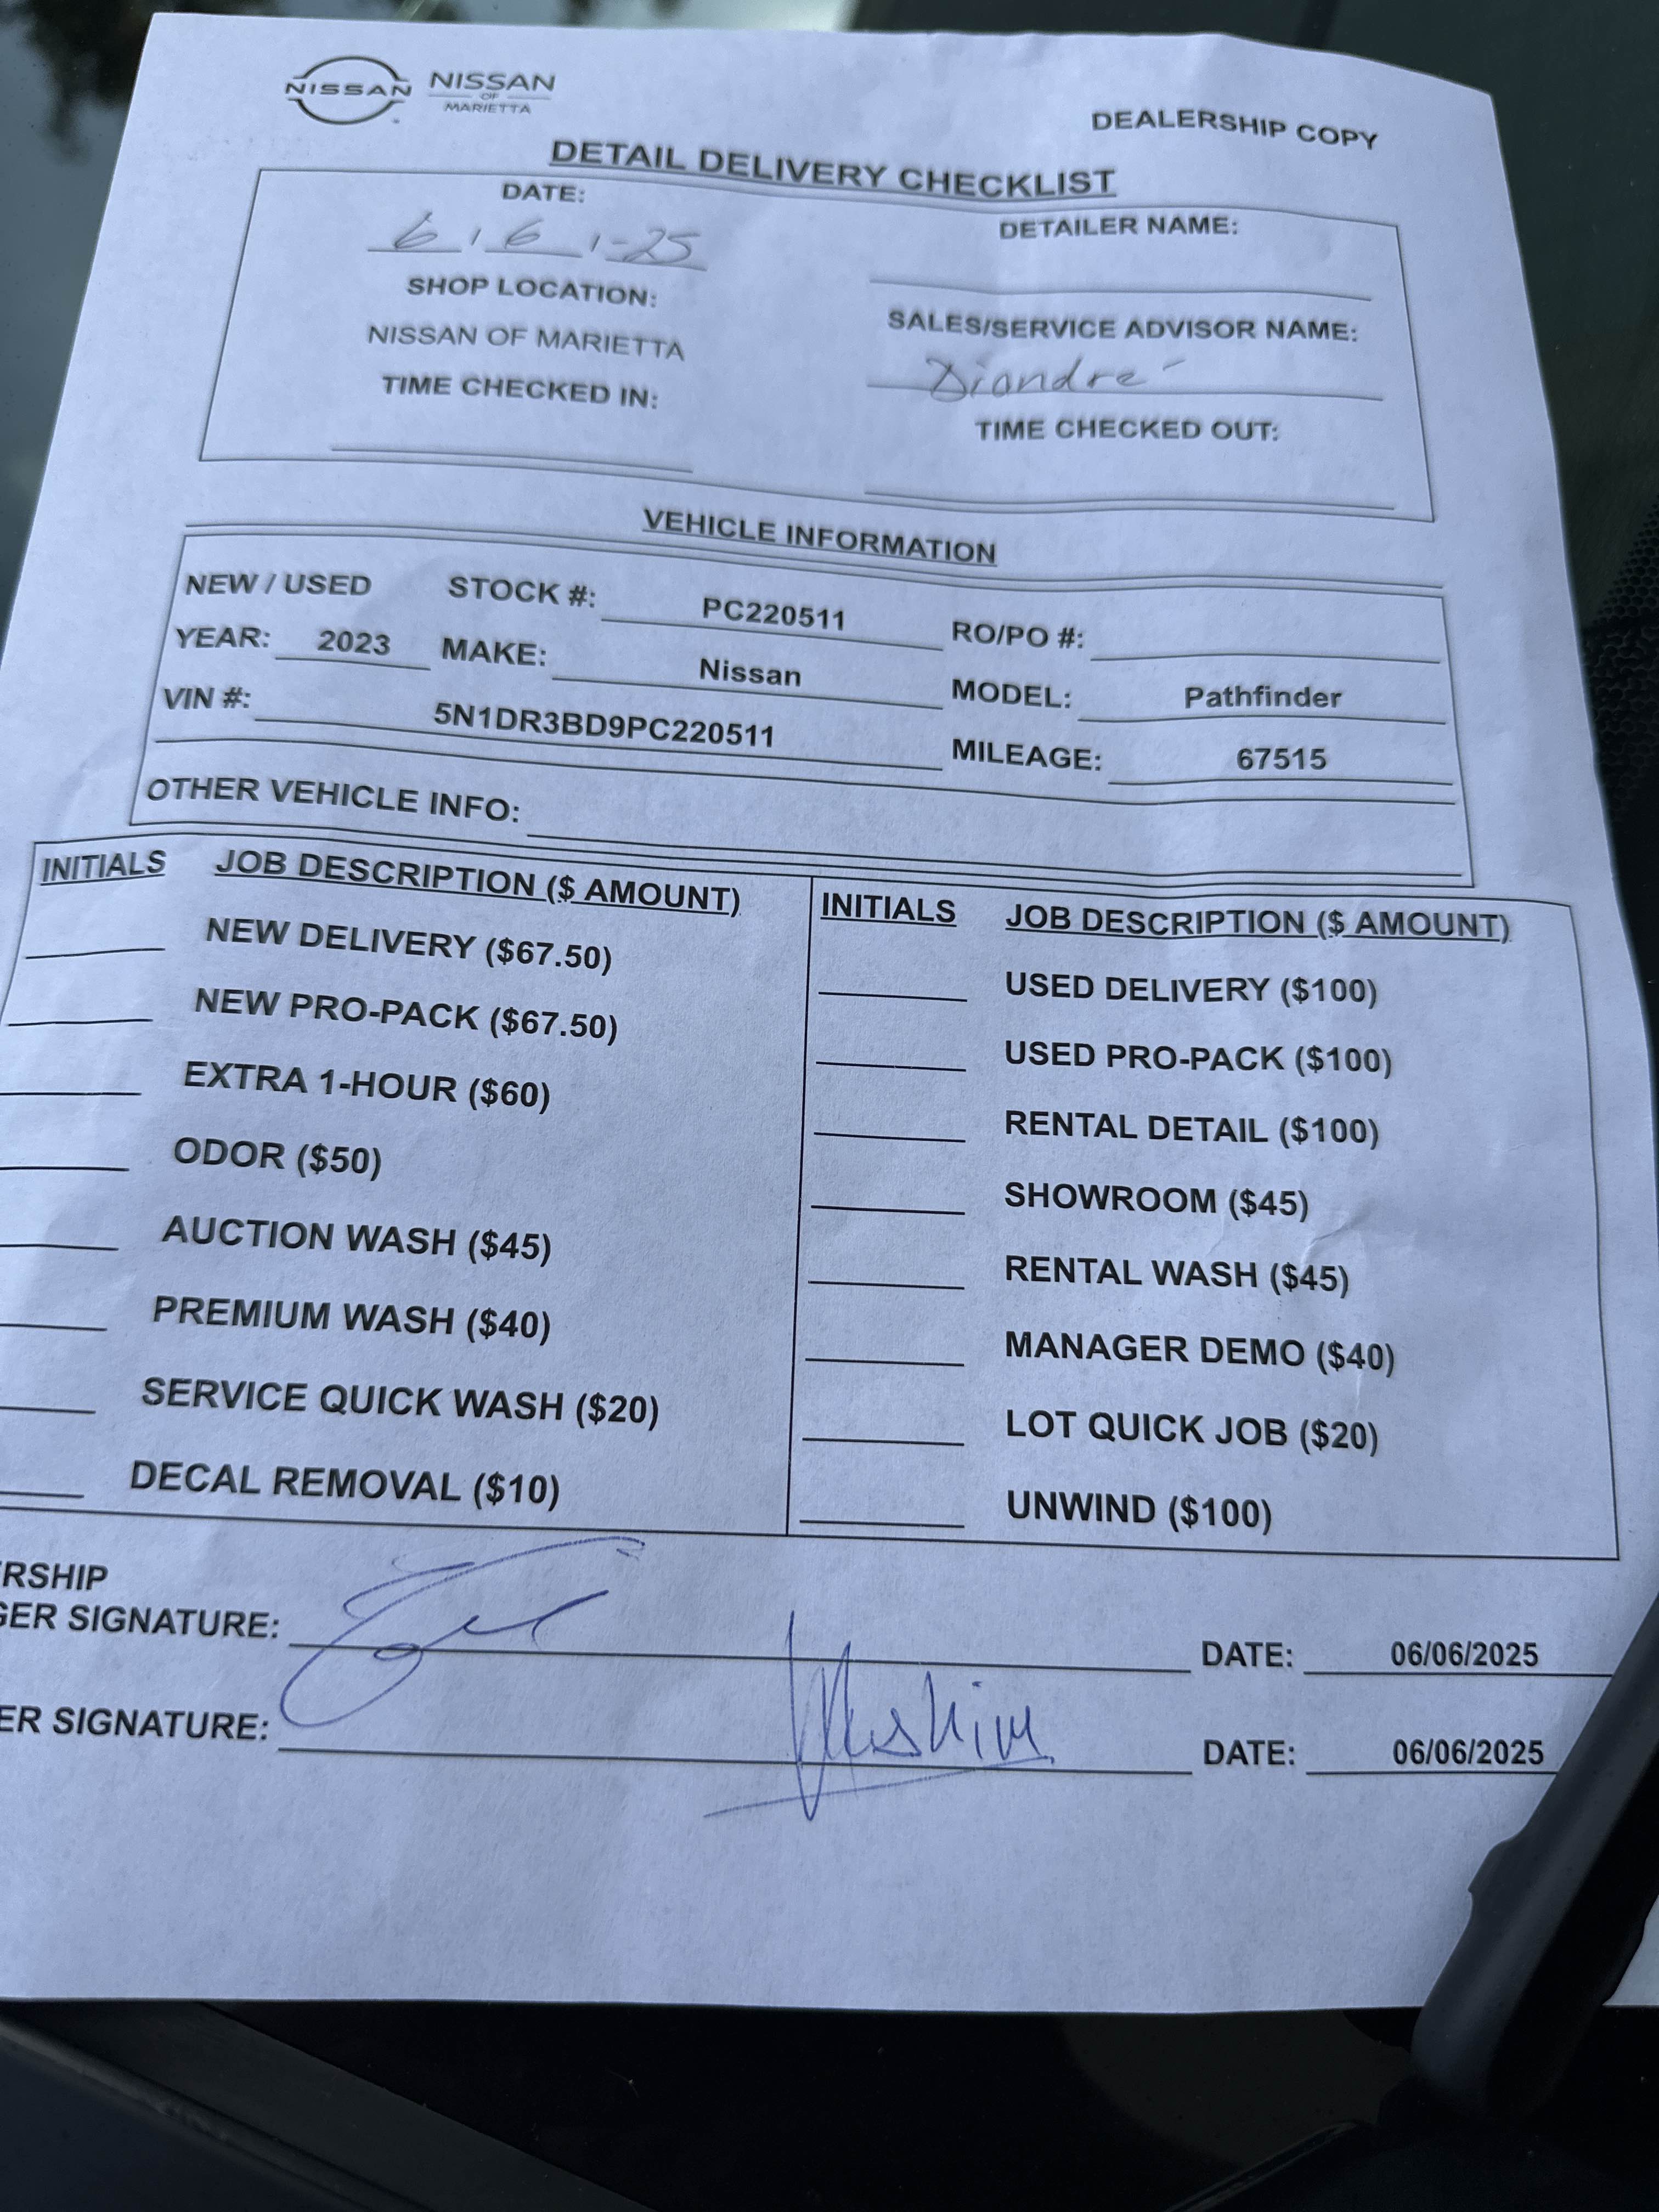 NISSAN NISSAN
OF
MARIETTA
DEALERSHIP COPY
DETAIL DELIVERY CHECKLIST
DATE:
6 / 6 / -25
DETAILER NAME:
SHOP LOCATION:
NISSAN OF MARIETTA
SALES/SERVICE ADVISOR NAME:
Diandre
TIME CHECKED IN:
TIME CHECKED OUT:
VEHICLE INFORMATION
NEW / USED STOCK #: PC220511 RO/PO #:
YEAR: 2023 MAKE: Nissan MODEL: Pathfinder
VIN #: 5N1DR3BD9PC220511 MILEAGE: 67515
OTHER VEHICLE INFO:
INITIALS JOB DESCRIPTION ($ AMOUNT)
NEW DELIVERY ($67.50)
NEW PRO-PACK ($67.50)
EXTRA 1-HOUR ($60)
ODOR ($50)
AUCTION WASH ($45)
PREMIUM WASH ($40)
SERVICE QUICK WASH ($20)
DECAL REMOVAL ($10)
INITIALS JOB DESCRIPTION ($ AMOUNT)
USED DELIVERY ($100)
USED PRO-PACK ($100)
RENTAL DETAIL ($100)
SHOWROOM ($45)
RENTAL WASH ($45)
MANAGER DEMO ($40)
LOT QUICK JOB ($20)
UNWIND ($100)
ERSHIP
GER SIGNATURE: DATE: 06/06/2025
ER SIGNATURE: DATE: 06/06/2025